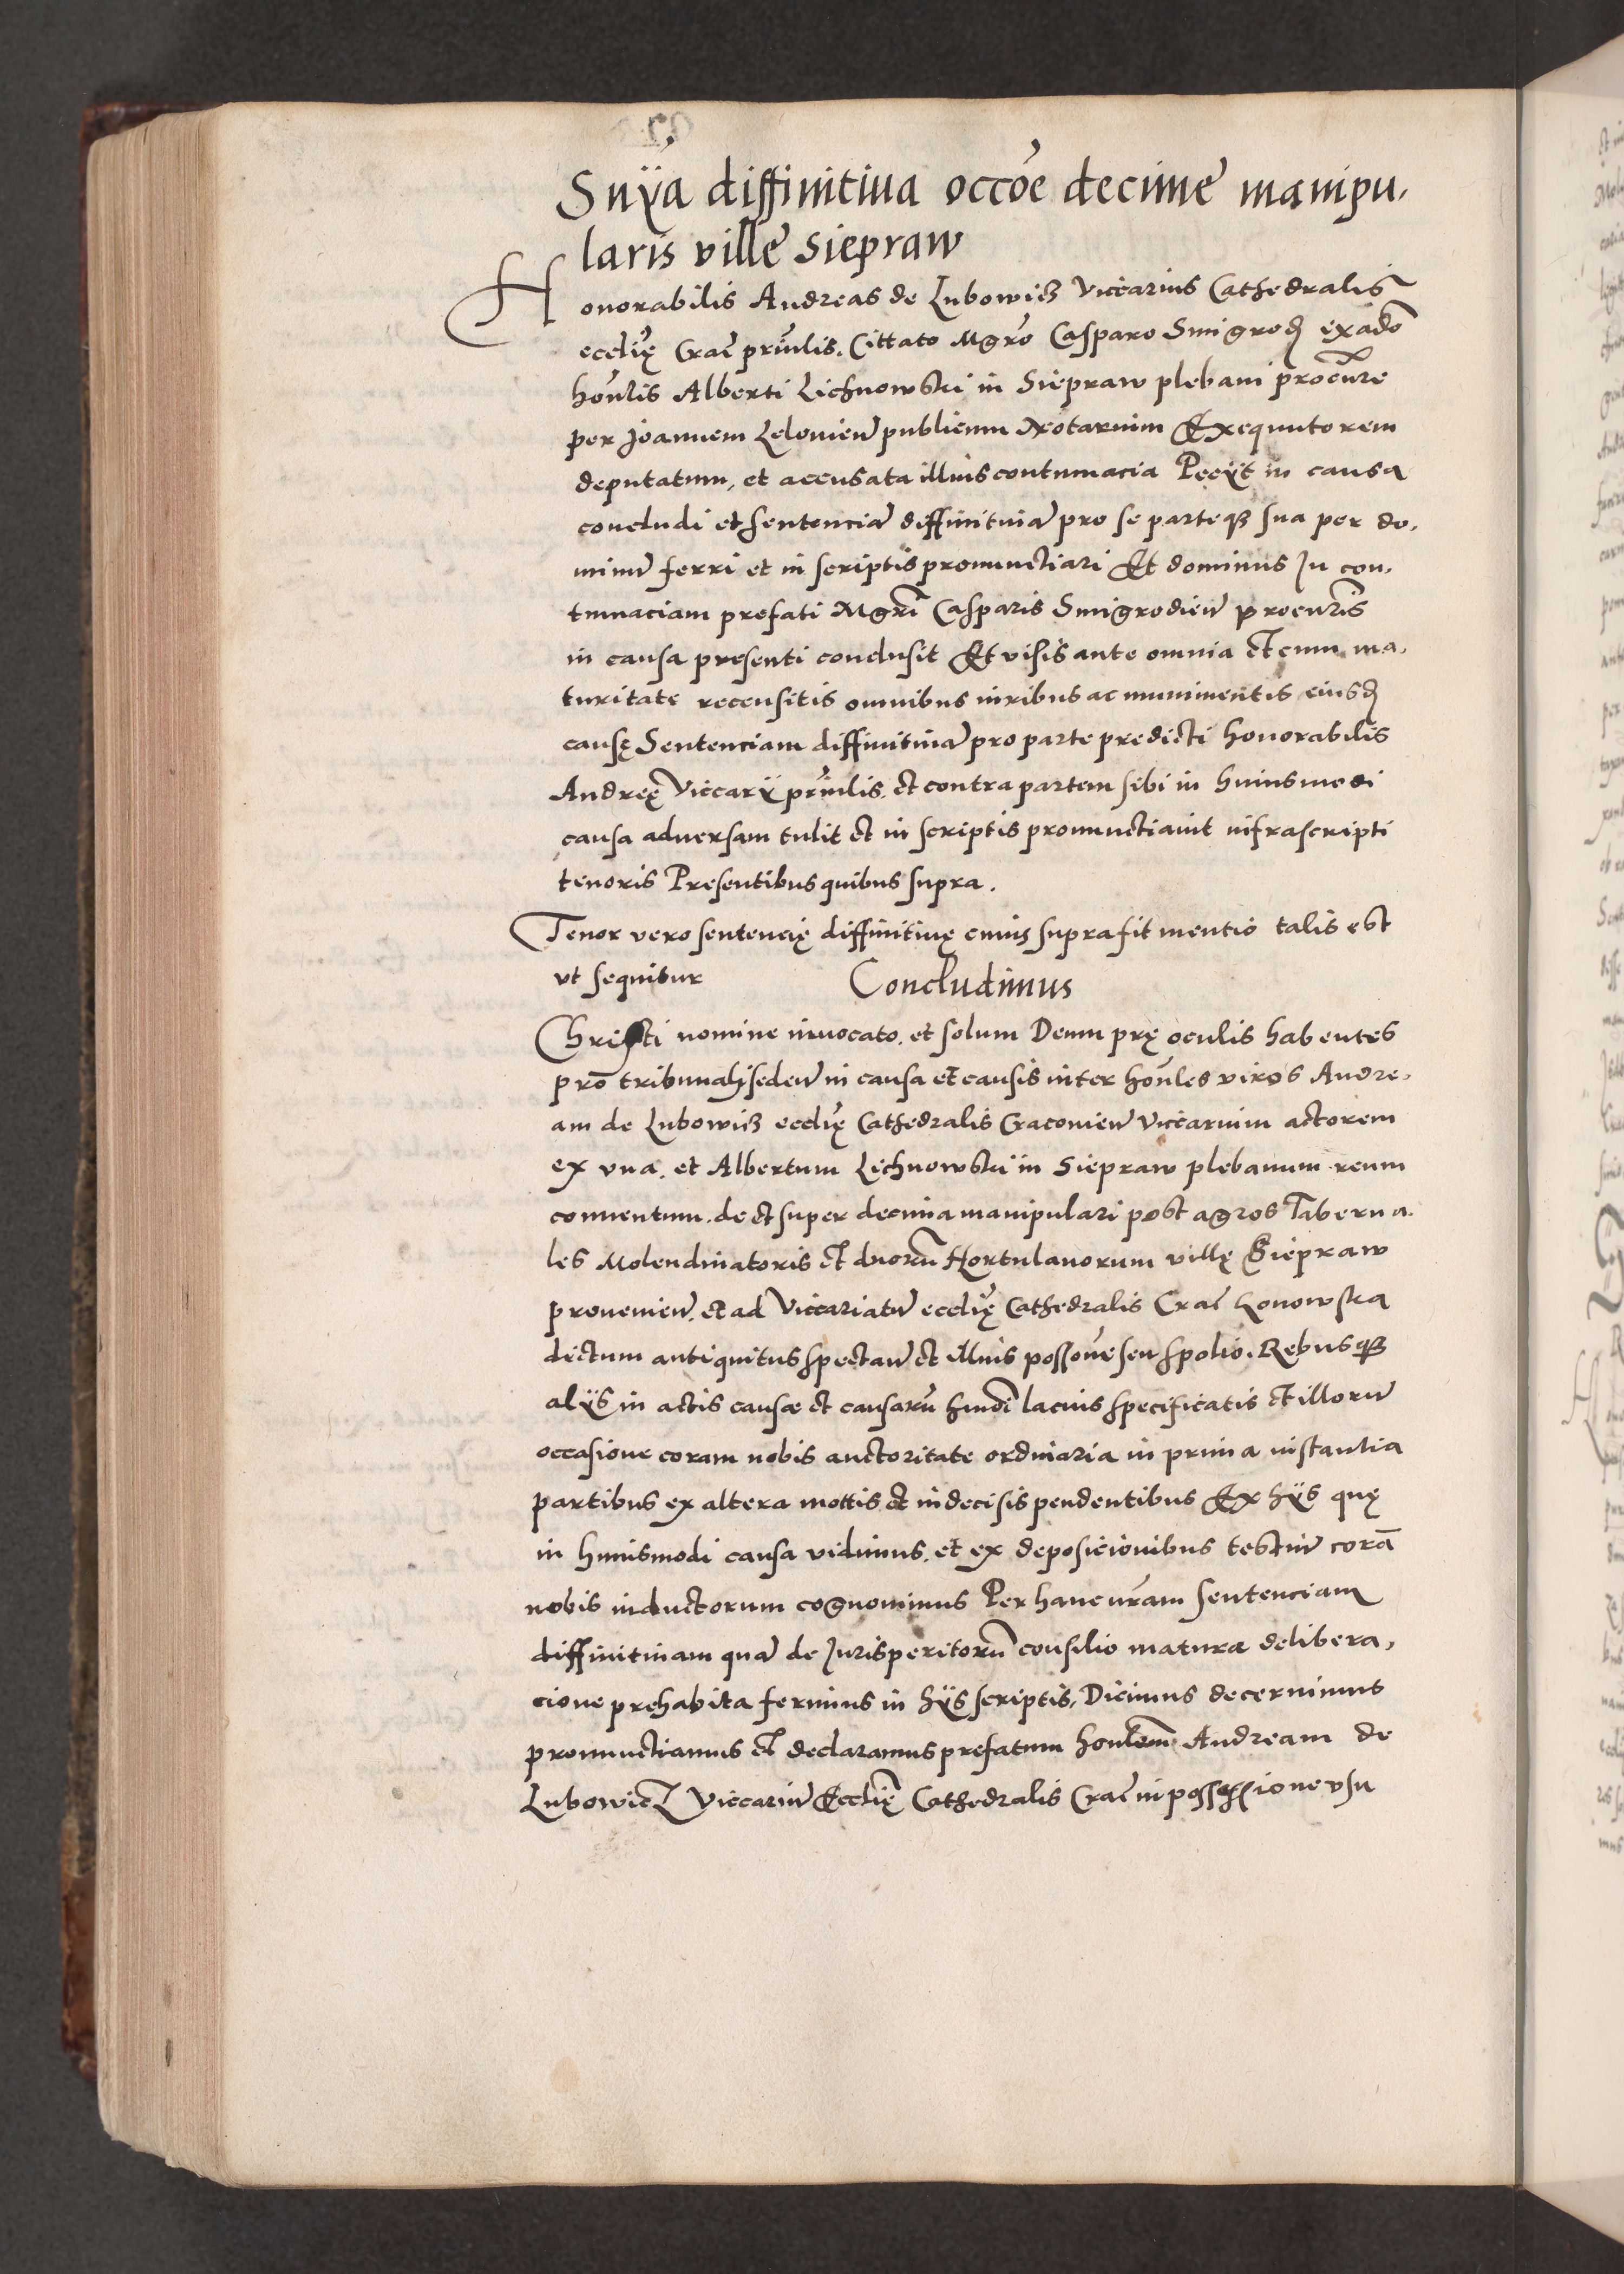 Snÿa diffinitiua occoẽ decime manipu,
laris ville Siepraw
Honorabilis Andreas de Lubowicz Viccarius Cathedralis
ecclię Crac̃ prñilis. Cittato Mgrõ Casparo Smigrod exadõ
honrlis Alberti Lichnowski in Siepraw plebani procurẽ
per Joannem Lelovieñ publicum Notarium Exequutorem
deputatum, et accusata illius contumacia Peeÿt in causa
concludi et sentenciã diffinitiuã pro se parteq3 sua per do,
minũ ferri et in scriptis pronunctiari Et dominus In con,
tumaciam prefati Mgrĩ Casparis Smigrodieñ procurĩs
in causa presenti conclusit Et visis ante omnia et cum ma,
turitate recensitis omnibus iuribus ac munimentis eiusd
causę Sentenciam diffinitiuã pro parte predicti honorabilis
Andreę Viccarÿ prñilis. et contra partem sibi in huiusmodi
causa aduersam tulit et in scriptis pronunctiauit infrascripti
tenoris Presentibus quibus supra.
Tenor vero sentencię diffinitiuę cuius supra fit mentio talis est
vt sequitur Concludimus
Christi nomine inuocato. et solum Deum prę oculis habentes
pro tribunali sedeñ in causa et causis inter honrles viros Andre,
am de Lubowicz ecclię Cathedralis Cracovieñ Viccarium actorem
ex vna. et Albertum Lichnowski in Siepraw plebanum reum
conuentum. de et super decima manipulari post agros Taberna,
les Molendinatoris et duorũ Hortulanorum villę Siepraw
provenieñ. et ad Viccariatũ ecclię Cathedralis Crac̃ Lonowska
dictum antiquitus spectañ et illius possonẽ seu spolio. Rebusq3
alÿs in actis causae et causarũ hmdĩ lacius specificatis et illorũ
occasione coram nobis auctoritate ordinaria in prima instantia
partibus ex altera mottis et indecisis pendentibus Ex hÿs quę
in huiusmodi causa vidimus. et ex deposicionibus testiũ corã
nobis inductorum cognouimus Per hanc nrãm sentenciam
diffinitiuam quã de Jurisperitorũ consilio matura delibera,
cione prehabita ferimus in hÿs scriptis, Dicimus decernimus
pronunctiamus et declaramus prefatum honlem Andream de
Lubowicz Viccariũ Ecclię Cathedralis Crac̃ in possessione vsu